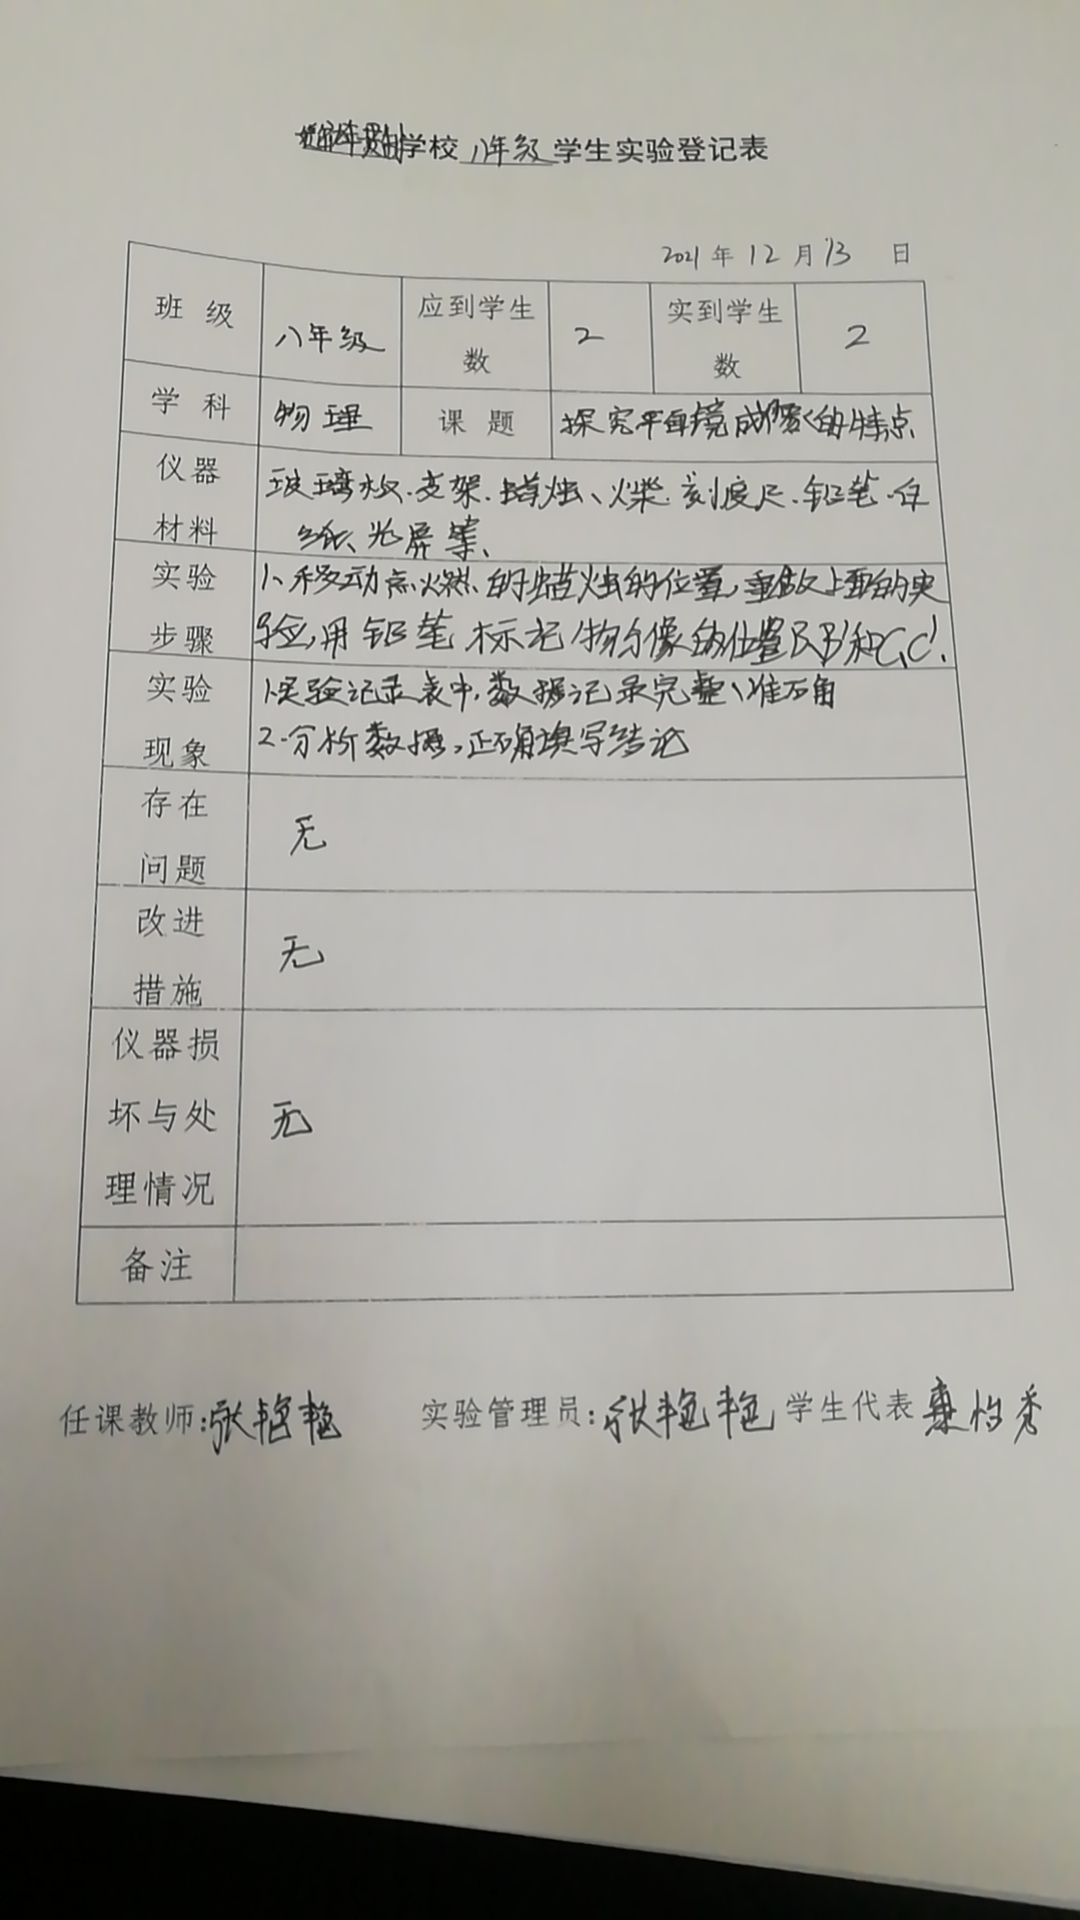 学校 八年级 学生实验登记表
2021 年 12 月 13 日
班 级 八年级 应到学生数 2 实到学生数 2
学 科 物理 课 题 探究平面镜成像的特点
仪器材料 玻璃板、支架、蜡烛、火柴、刻度尺、铅笔、白
纸、光屏等、
实验步骤 1、移动点燃的蜡烛的位置,重做上面的实
验,用铅笔标记物与像的位置B、B'和C、C'.
实验现象 1.实验记录表中,数据记录完整、准确
2.分析数据,正确填写结论
存在问题 无
改进措施 无
仪器损坏与处理情况 无
备注
任课教师:张艳艳 实验管理员:张艳艳 学生代表